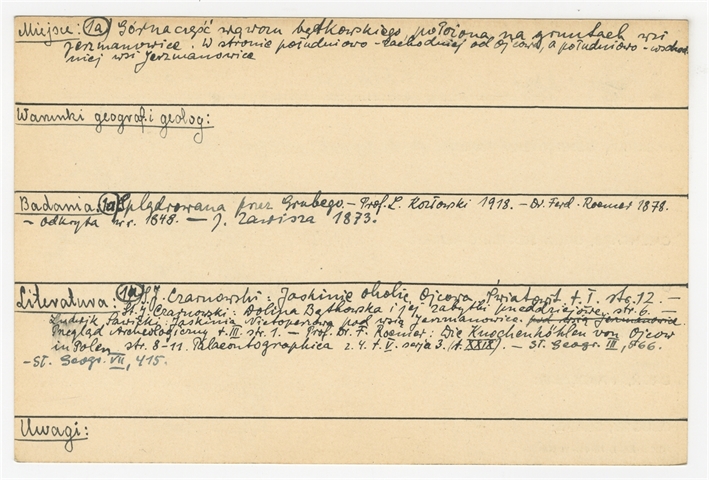 Miejsce: 1a) Górna część wąwozu będkowskiego, położona na gruntach wsi
Jerzmanowice. W stronie południowo-zachodniej od Ojcowa, a południowo-wschod
niej wsi Jerzmanowice
Warunki geograf. i geolog:
Badania: 1a) Splądrowana przez Grubego. – Prof. L. Kozłowski 1918. – Dr. Ferd. Roemer 1878.
– odkryta w r. 1848. – J. Zawisza 1873.
Literatura: 1a) S. J. Czarnowski: Jaskinie okolic Ojcowa, Światowit t. I. str. 12. –
St. J. Czarnowski: Dolina Będkowska i jej zabytki przeddziejowe, str. 6. –
Ludwik Sawicki: Jaskinia Nietoperzowa pod wsią Jerzmanowice. pod wsią Jerzmanowice.
Przegląd Archeologiczny t. III str. 1. – Prof. Dr. F. Roemer: Die Knochenhöhlen von Ojcow
in Polen, str. 8-11. Palaeontographica z. 4. t. V. serja 3. (t. XXIX). – Sł. Geogr. III, 766.
– Sł. Geogr. VII, 415.
Uwagi: